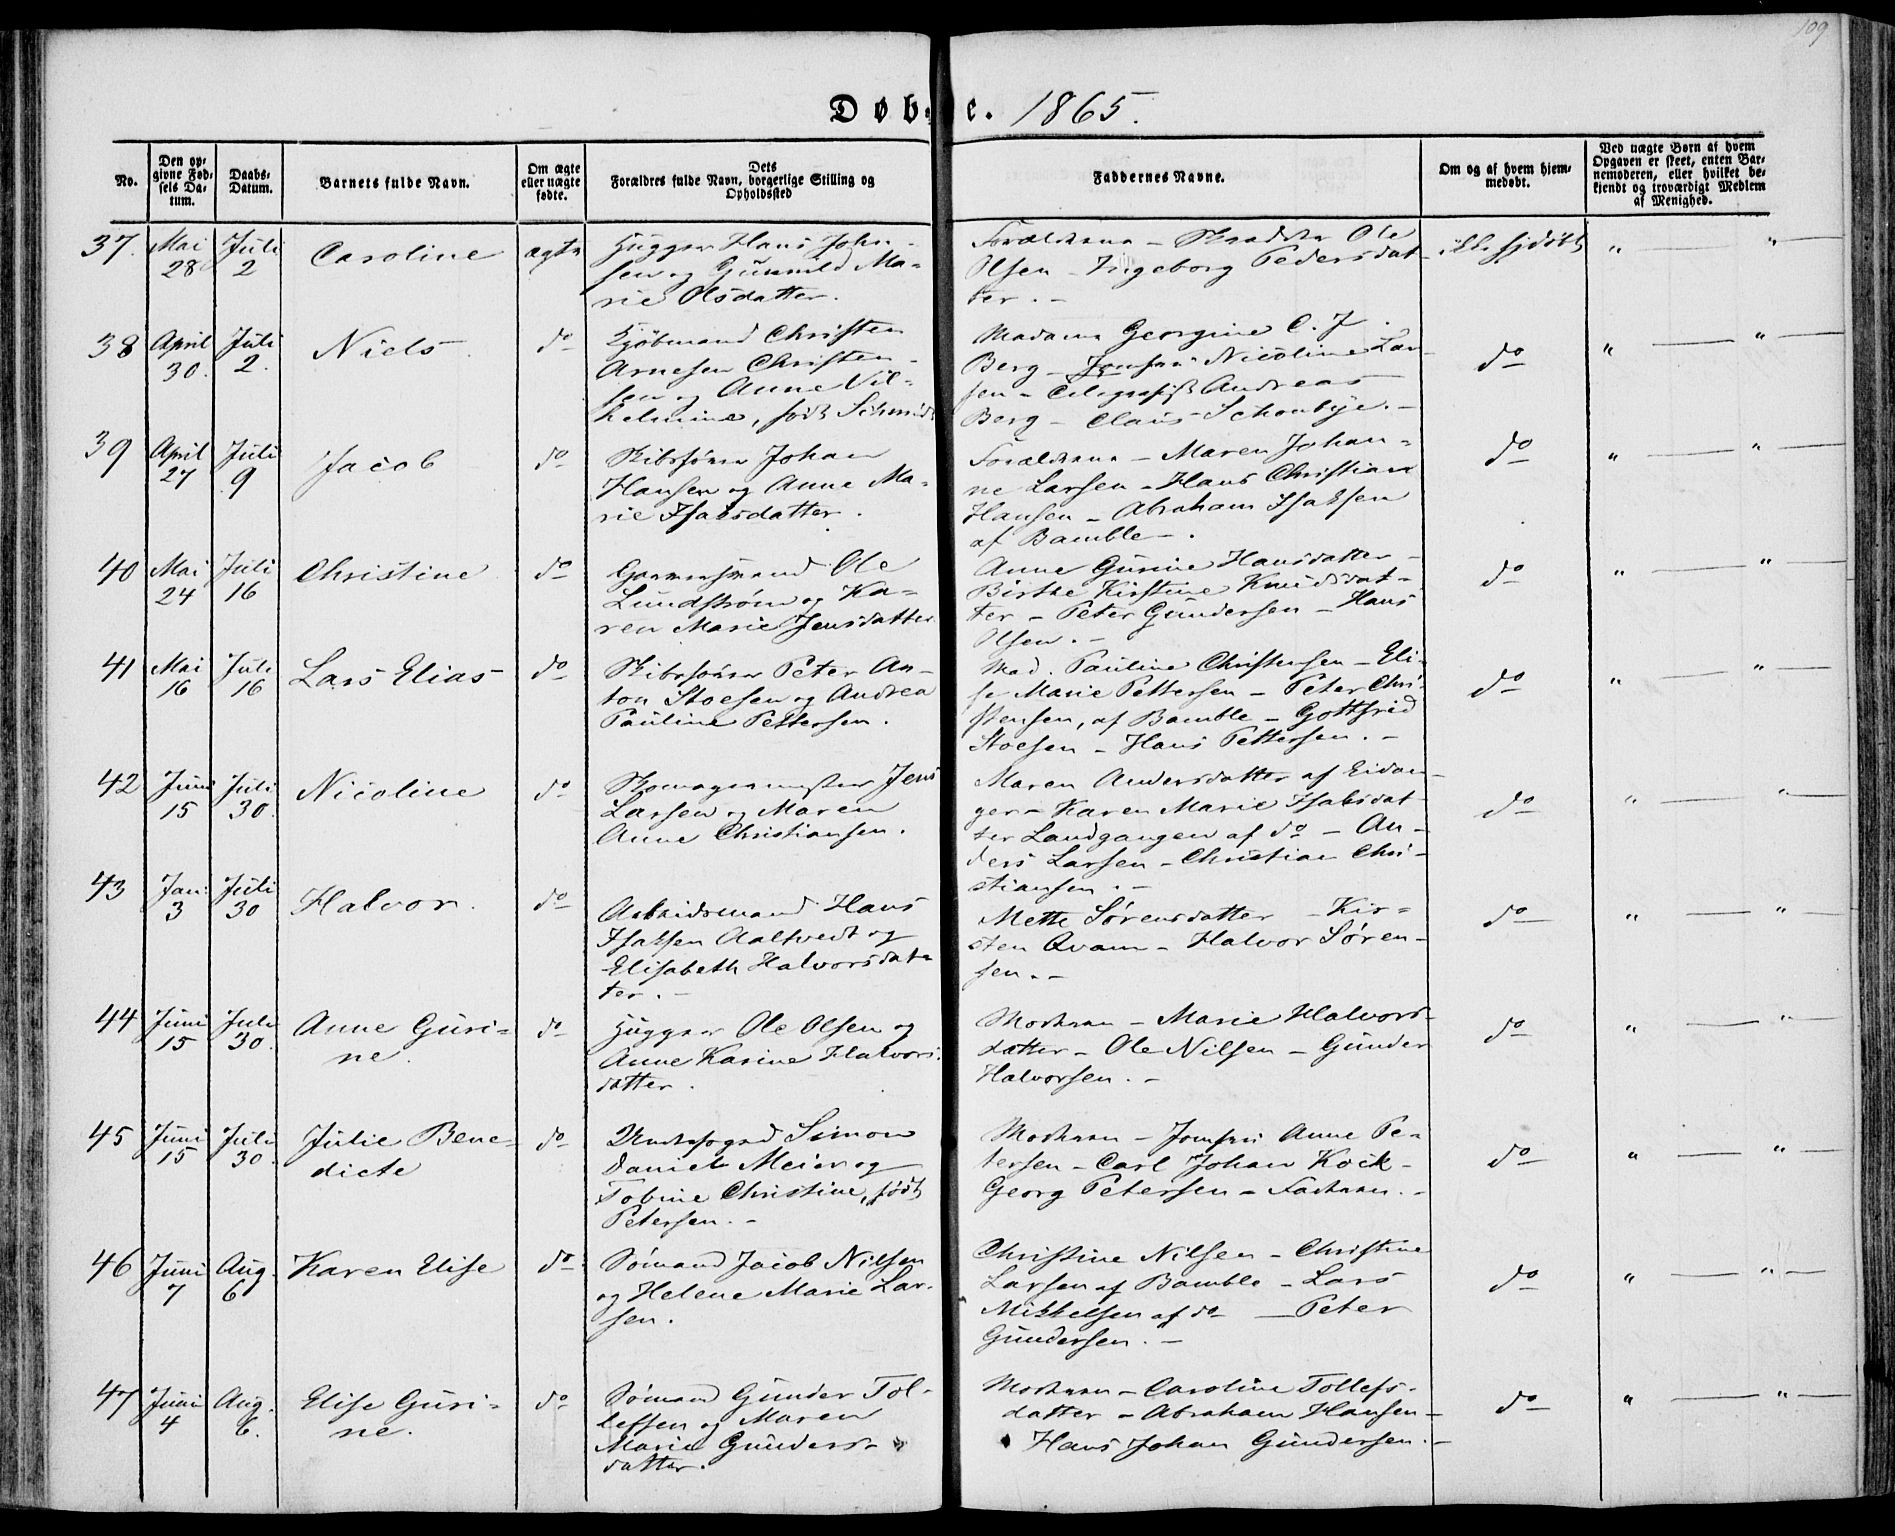 109
Døbte. 1865.
No.
Den opgivne Fødsels Datum.
Daabs-Datum.
Barnets fulde Navn.
Om ægte eller uægte fødte.
Dets Forældres fulde Navn, borgerlige Stilling og Opholdssted
Faddernes Navne.
Om og af hvem hjemmedøbt.
Ved uægte Børn af hvem Opgaven er skeet, enten Barnemoderen, eller hvilket bekjendt og troværdigt Medlem af Menighed.
37. Mai 28 Juli 2 Caroline ægte
Hugger Hans John-
sen og Gunnild Ma-
rie Olsdatter.
Forældrene - Skrædder Ole
Olsen - Ingeborg Pedersdat-
ter. -
ikke hjdøbt " "
38 April 30. Juli 2. Niels do
Kjøbmand Christen
Arnesen Christen-
sen og Anne Vil-
helmine, født Schmidt
Madame Georgine C. J.
Berg - Jomfru Nicoline Lar-
sen - Telegrafist Andreas
Berg - Claus Schonbye. -
do " "
39 April 27 Juli 9 Jacob do
Skibstømr Johan
Hansen og Anne Ma-
rie Isaksdatter.
Forældrene - Maren Johan-
ne Larsen - Hans Christian
Hansen - Abraham Isaksen
af Bamble -.
do " "
40 Mai 24 Juli 16 Christine do
Garversvend Ole
Lundstrøm og Ka-
ren Marie Jensdatter
Anne Gurine Hansdatter -
Birthe Kirstine Knudsdat-
ter - Peter Gundersen - Hans
Olsen. -
do " "
41 Mai 16 Juli 16 Lars Elias do
Skibstømr Peter An-
ton Stoesen og Andrea
Pauline Pettersen.
Mad. Pauline Christensen - Eli-
se Marie Pettersen - Peter Chri-
stensen, af Bamble - Gottfried
Stoesen - Hans Pettersen. -
do " "
42 Juni 15 Juli 30. Nicoline do
Skomagermester Jens
Larsen og Maren
Anne Christiansen.
Maren Andersdatter af Eidan-
ger - Karen Marie Isaksdat-
ter Landgangen af do - An-
ders Larsen - Christian Chri-
stiansen. -
do " "
43 Jan: 3 Juli 30 Halvor. do
Arbeidsmand Hans
Isaksen Aaltvedt og
Elisabeth Halvorsdat-
ter. -
Mette Sørensdatter - Kir-
sten Qvam - Halvor Søren-
sen. -
do " "
44 Juni 15 Juli 30. Anne Guri-
ne. do
Hugger Ole Olsen og
Anne Karine Halvors-
datter.
Moderen - Marie Halvors-
datter - Ole Nilsen - Gunder
Halvorsen. -
do " "
45 Juni 15 Juli 30. Julie Bene-
dicte do
Underfoged Simon
Daniel Meier og
Tobine Christine, født
Petersen. -
Moderen - Jomfru Anne Pe-
tersen - Carl Johan Kock -
Georg Petersen - Faderen. -
do " "
46 Juni 7 Aug. 6 Karen Elise do
Sømand Jacob Nilsen
og Helene Marie Lar-
sen.
Christine Nilsen - Christine
Larsen af Bamble - Lars
Mikkelsen af do - Peter
Gundersen. -
do " "
47 Juni 4 Aug. 6. Elise Guri-
ne. do
Sømand Gunder Tol-
lefsen og Maren
Marie Gunders-
datter.
Moderen - Caroline Tollefs-
datter - Abraham Hansen -
Hans Johan Gundersen. -
do " "